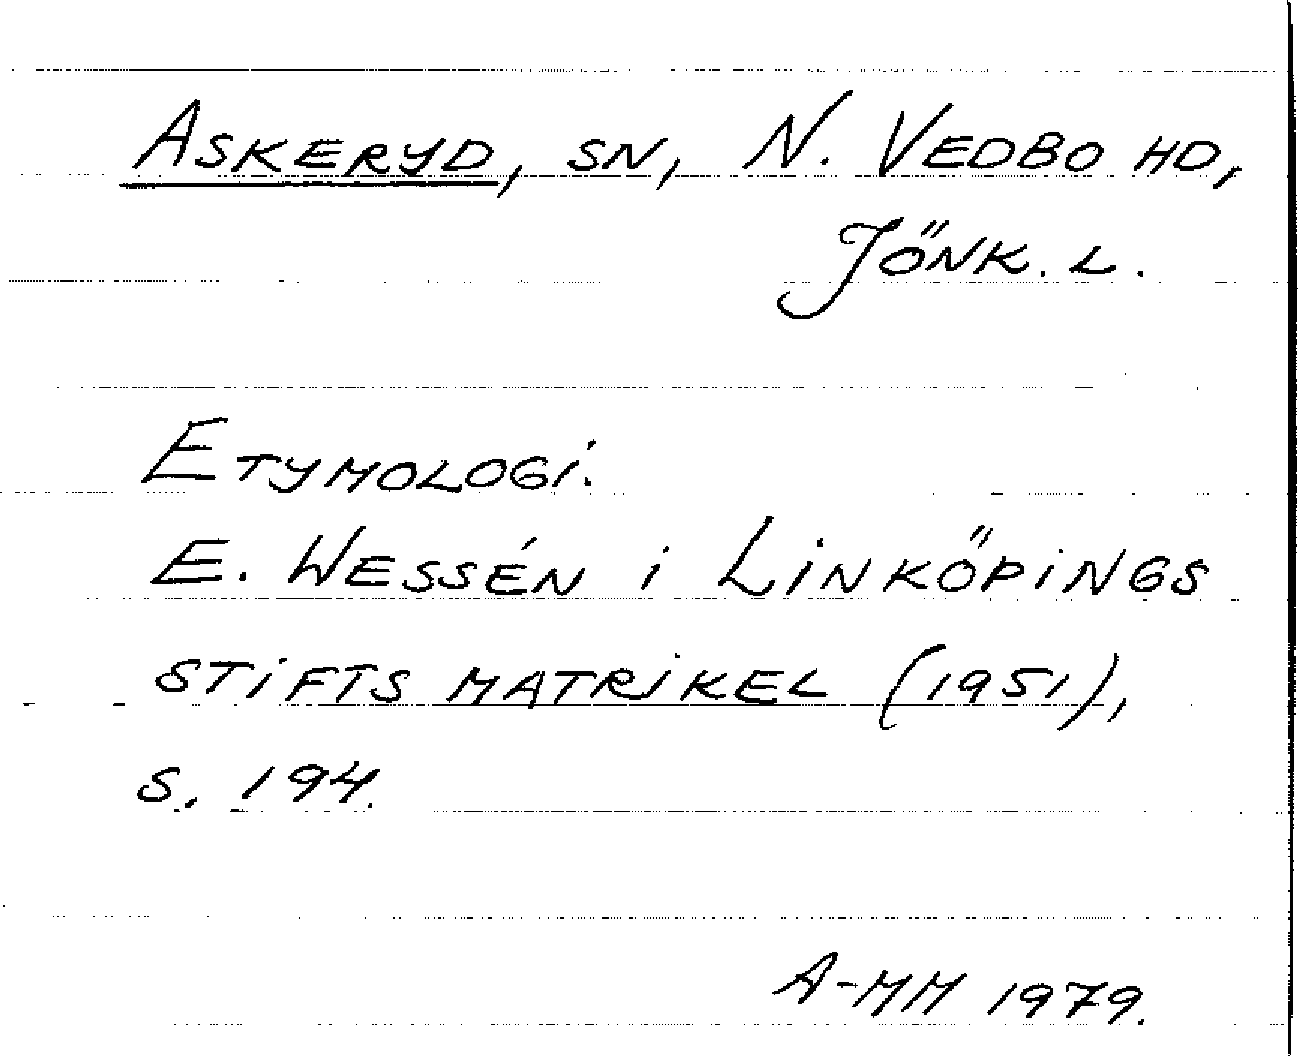 ASKERYD, SN, N. VEDBO HD,
JÖNK. L.
ETYMOLOGI.
E. WESSÉN i LINKÖPINGS
STIFTS MATRIKEL (1951),
S. 194.
A-MM 1979.